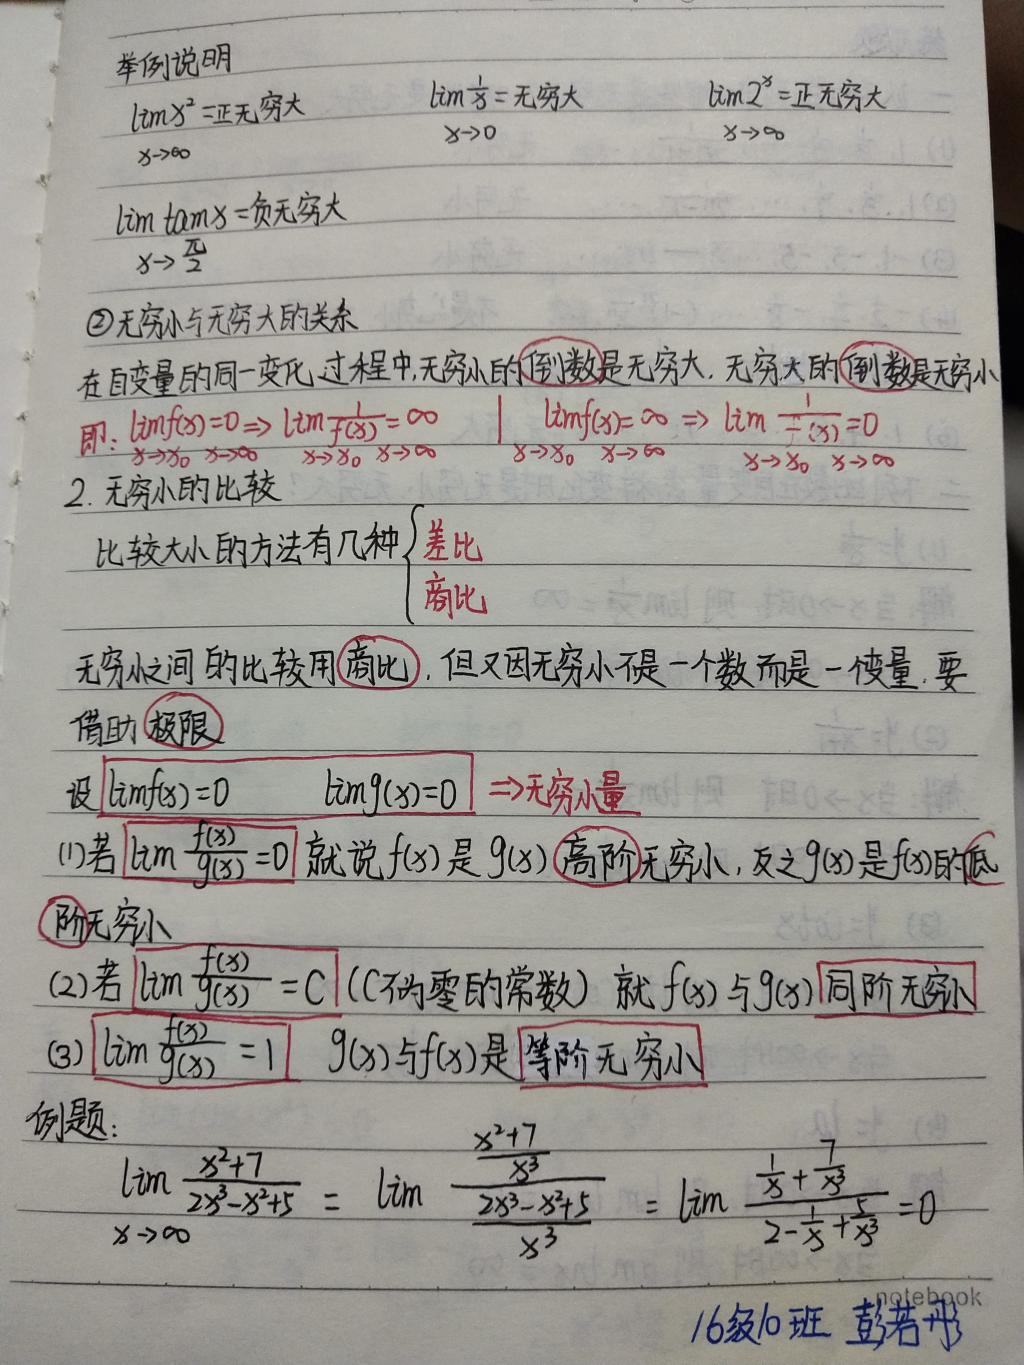 举例说明
lim x² = 正无穷大   lim 1/x = 无穷大   lim 2ˣ = 正无穷大
x→∞   x→0   x→∞
lim tanx = 负无穷大
x→π/2
②无穷小与无穷大的关系
在自变量的同一变化过程中,无穷小的倒数是无穷大. 无穷大的倒数是无穷小
即: lim f(x)=0 ⇒ lim 1/f(x) = ∞ | lim f(x)=∞ ⇒ lim 1/f(x) = 0
x→x₀ x→∞   x→x₀ x→∞   x→x₀ x→∞   x→x₀ x→∞
2. 无穷小的比较
比较大小的方法有几种 { 差比
商比
无穷小之间的比较用商比, 但又因无穷小不是一个数而是一个变量.要
借助极限
设 lim f(x)=0   lim g(x)=0 ⇒无穷小量
(1)若 lim f(x)/g(x) = 0 就说 f(x) 是 g(x) 高阶无穷小, 反之 g(x) 是 f(x)的低
阶无穷小
(2)若 lim f(x)/g(x) = C (C不为零的常数) 就 f(x) 与 g(x) 同阶无穷小
(3) lim f(x)/g(x) = 1   g(x) 与 f(x) 是 等阶无穷小
例题:
lim (x²+7)/(2x³-x²+5) = lim ((x²+7)/x³)/((2x³-x²+5)/x³) = lim (1/x + 7/x³)/(2 - 1/x + 5/x³) = 0
x→∞
notebook
16级10班 彭若彤